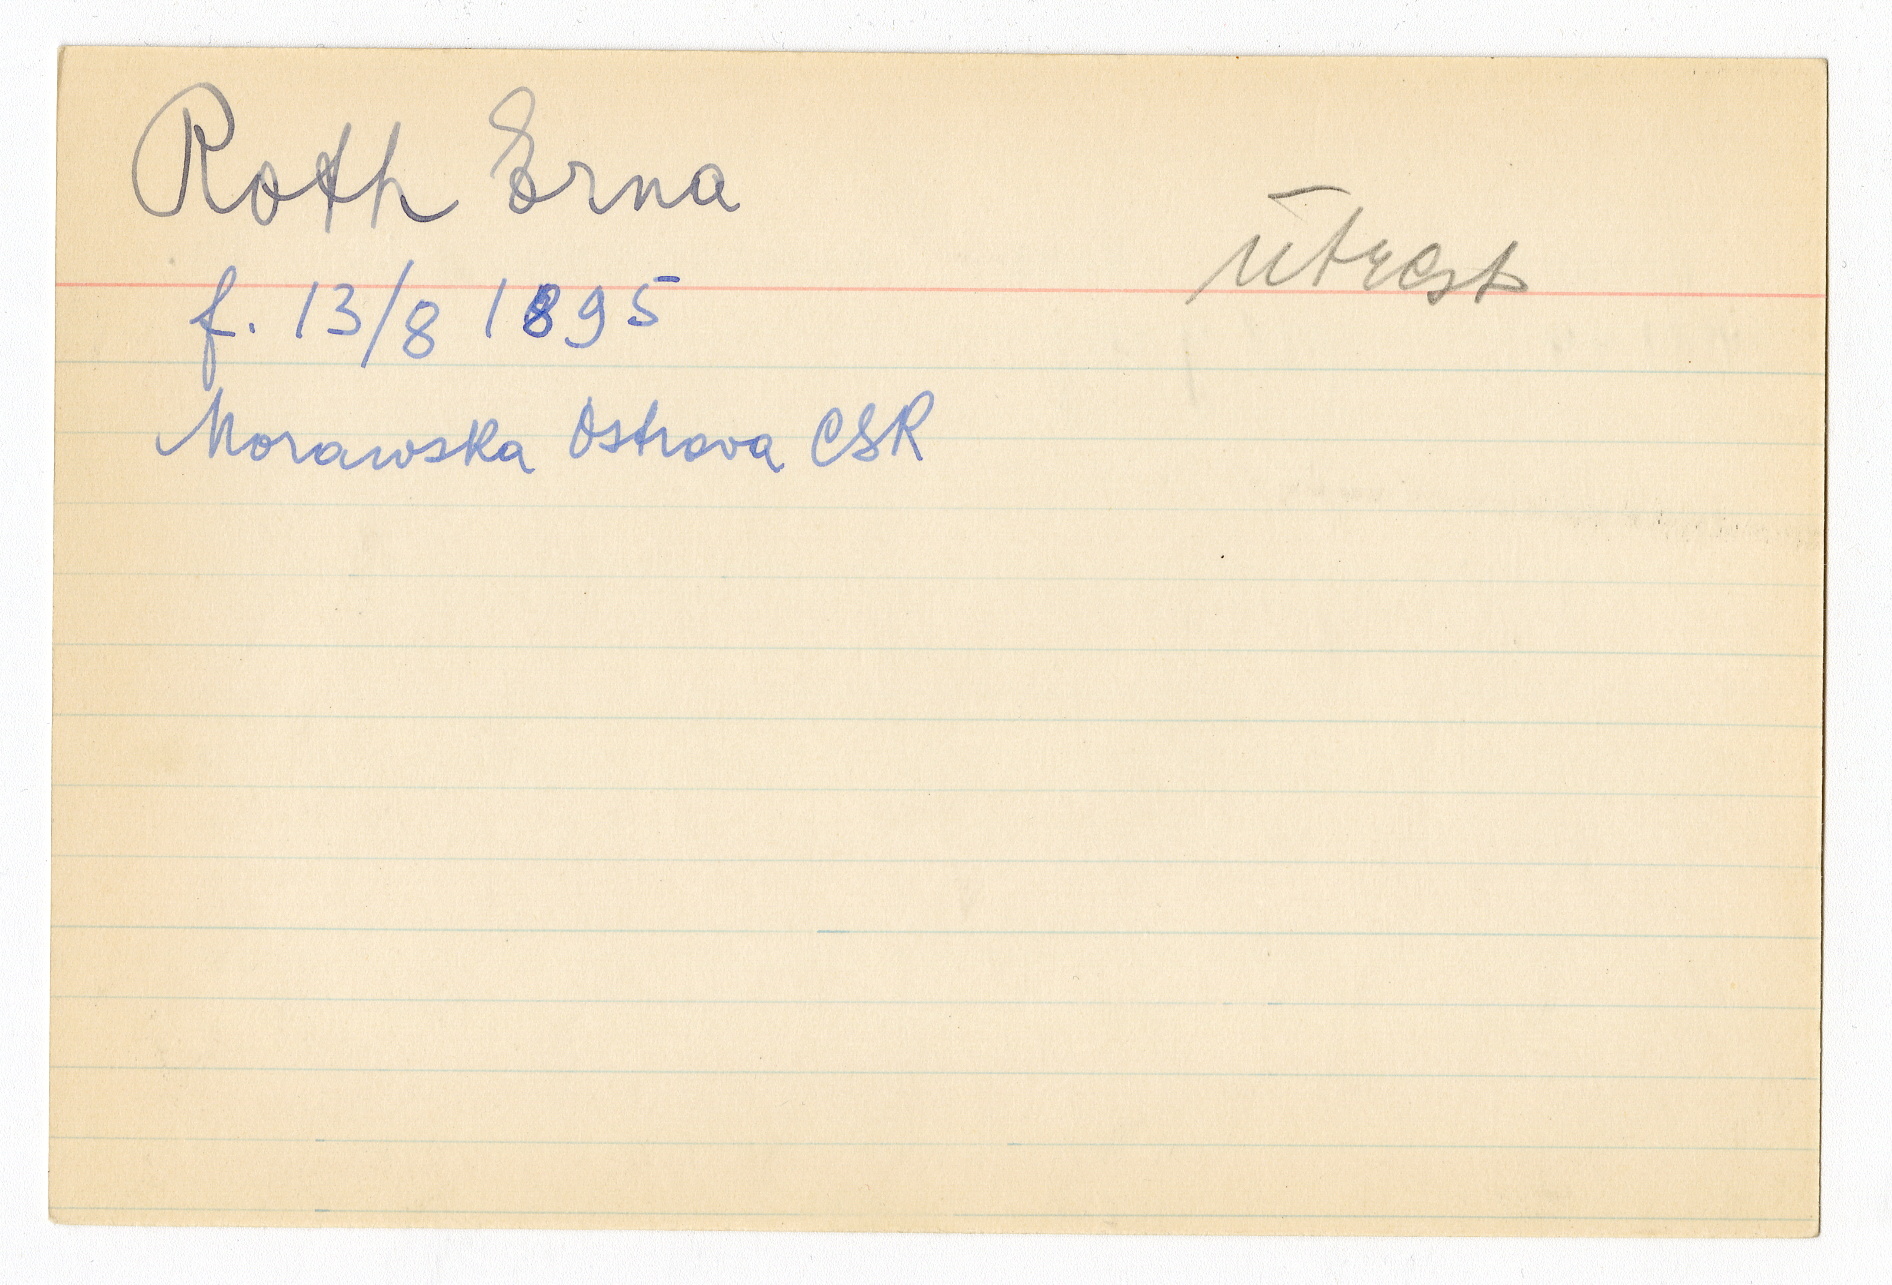 Roth Erna
utrest
f. 13/8 1895
Morawska Ostrava CSR